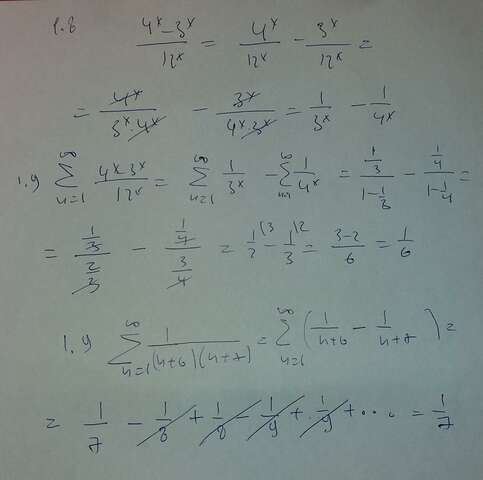 1.8 (4^x-3^x)/12^x = 4^x/12^x - 3^x/12^x =
= 4^x/(3^x·4^x) - 3^x/(4^x·3^x) = 1/3^x - 1/4^x
1.9 ∑_{n=1}^∞ (4^x-3^x)/12^x = ∑_{n=1}^∞ 1/3^x - ∑_{n=1}^∞ 1/4^x = (1/3)/(1-1/3) - (1/4)/(1-1/4) =
= (1/3)/(2/3) - (1/4)/(3/4) = 1/2^{(3} - 1/3^{(2} = (3-2)/6 = 1/6
1.9 ∑_{n=1}^∞ 1/((n+6)(n+7)) = ∑_{n=1}^∞ (1/(n+6) - 1/(n+7)) =
= 1/7 - 1/8 + 1/8 - 1/9 + 1/9 + ... = 1/7